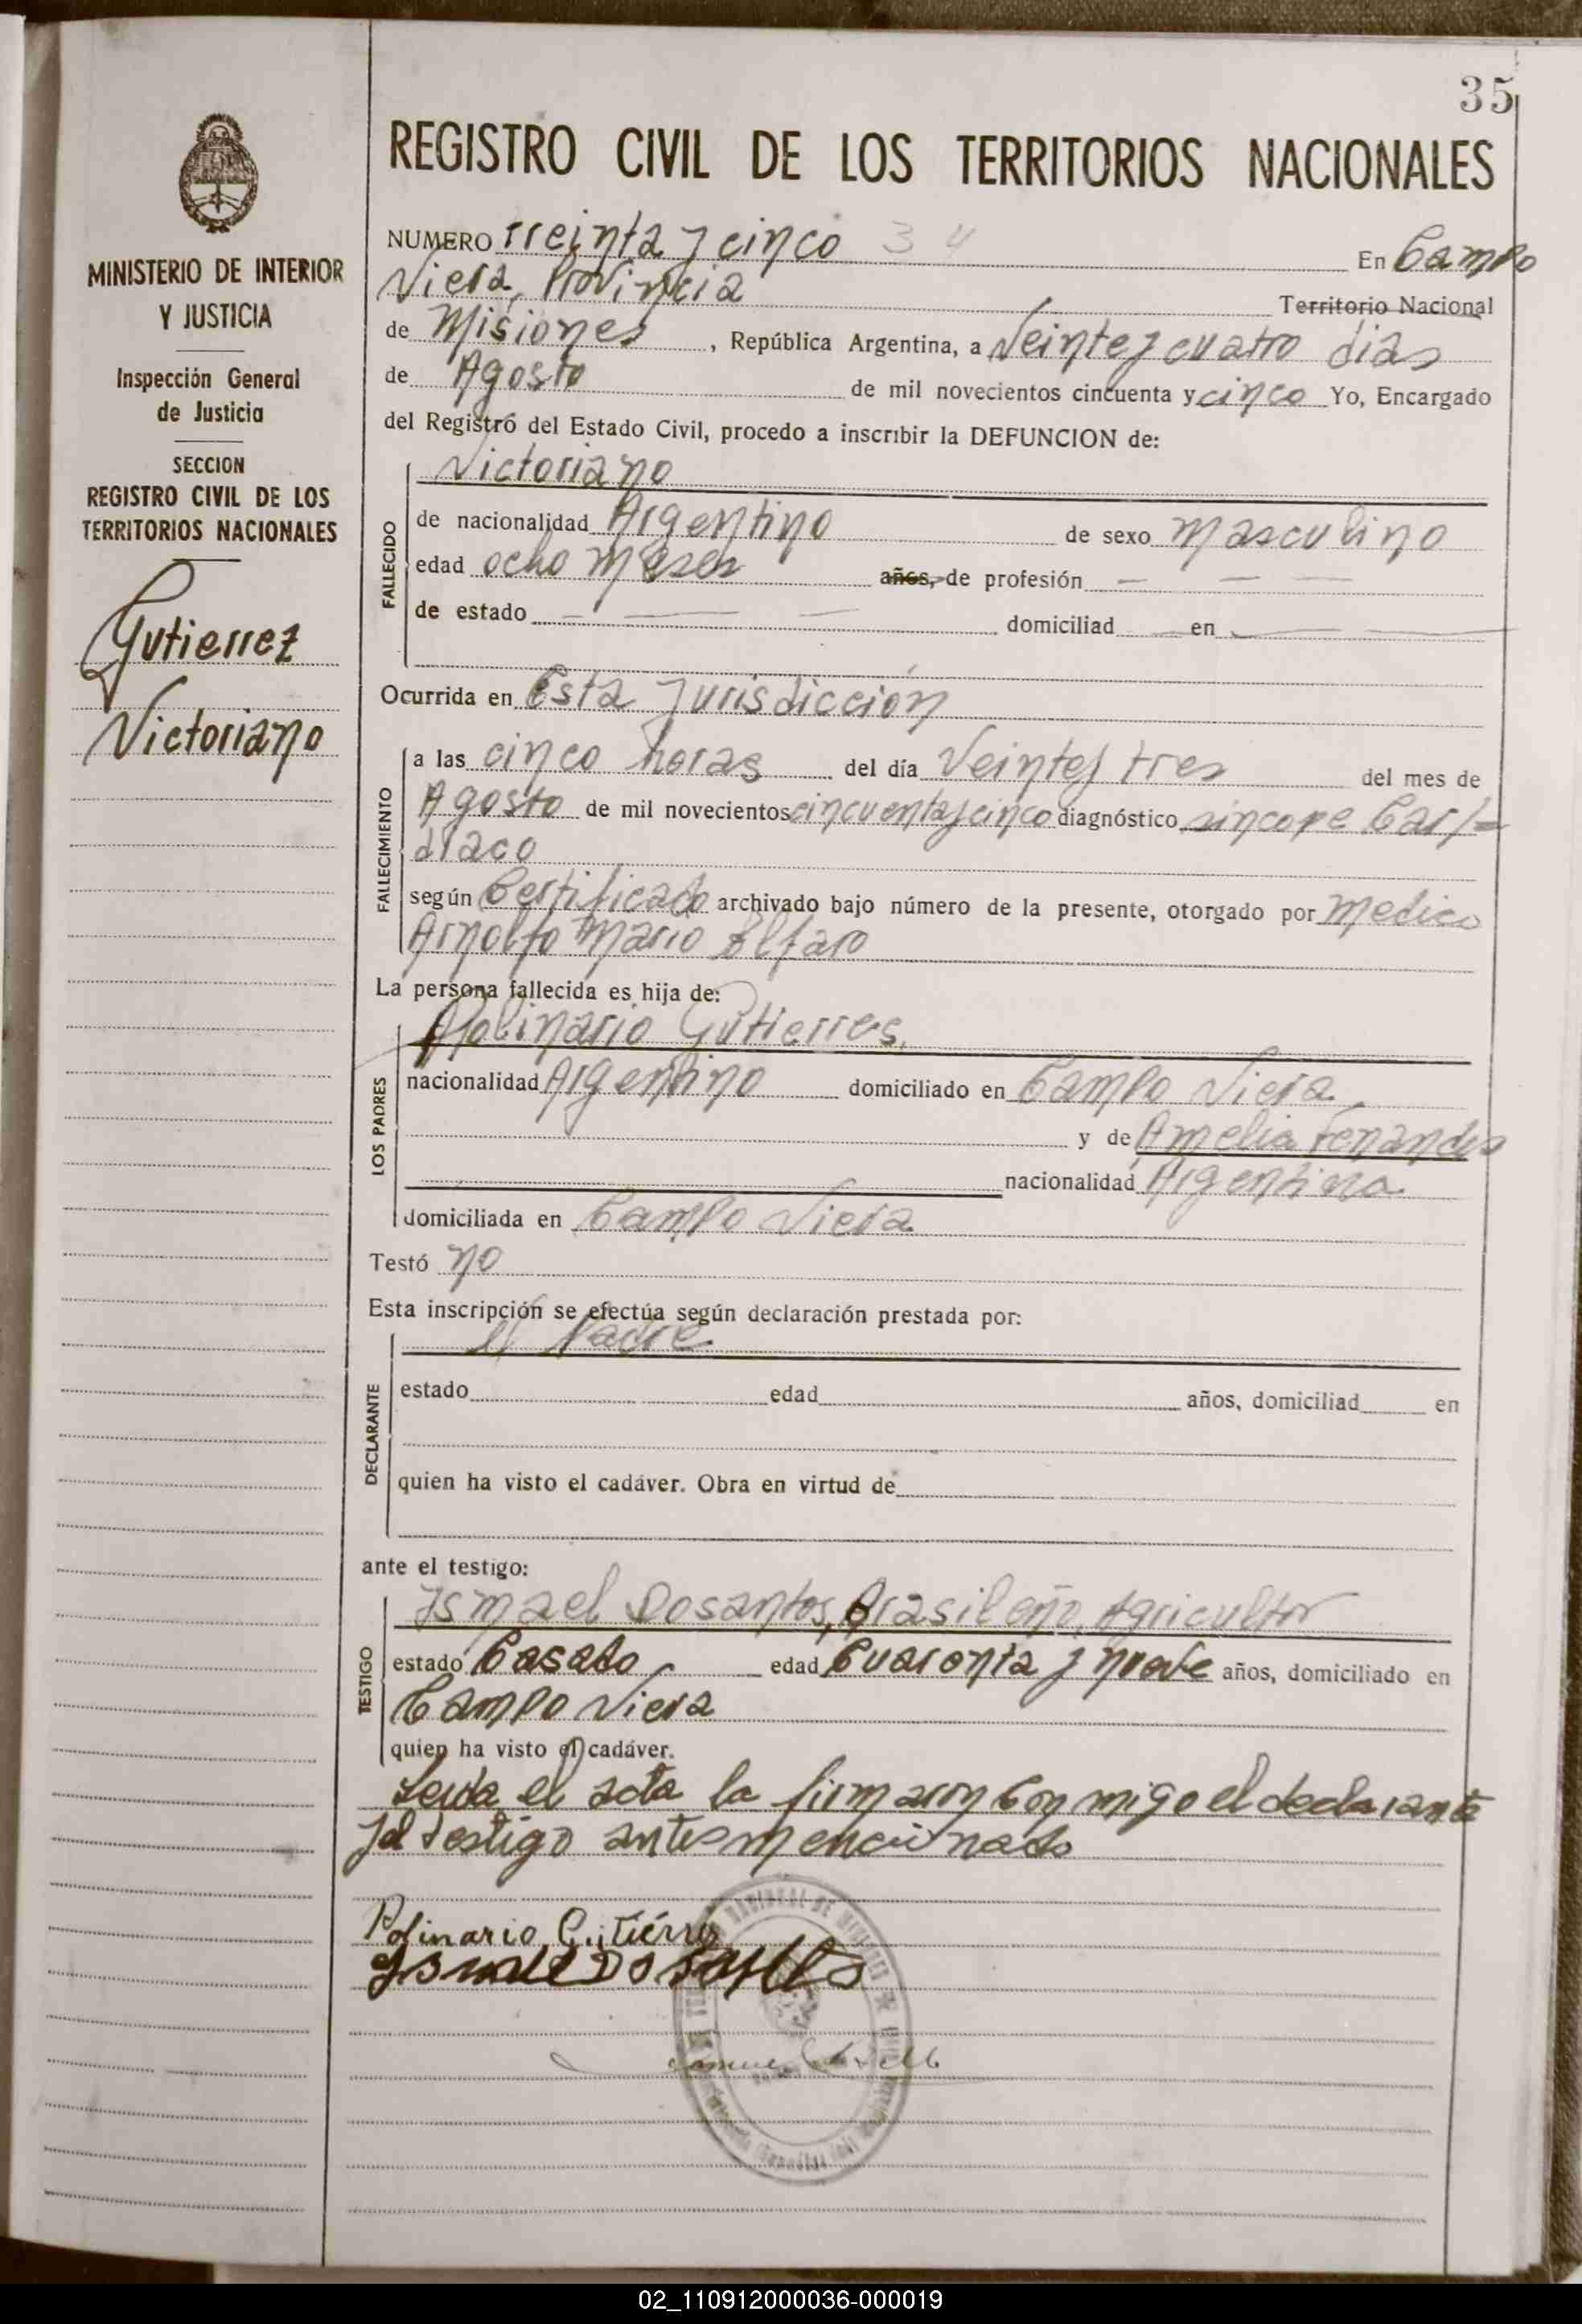 35
REGISTRO CIVIL DE LOS TERRITORIOS NACIONALES
MINISTERIO DE INTERIOR
Y JUSTICIA
Inspección General
de Justicia
SECCION
REGISTRO CIVIL DE LOS
TERRITORIOS NACIONALES
Gutierrez
Victoriano
NUMERO Treinta y cinco 34 En Campo
Viera, Provincia Territorio Nacional
de Misiones, República Argentina, a Veinte y cuatro dias
de Agosto de mil novecientos cincuenta y cinco Yo, Encargado
del Registro del Estado Civil, procedo a inscribir la DEFUNCION de:
FALLECIDO
Victoriano
de nacionalidad Argentino de sexo Masculino
edad ocho meses años, de profesión — — —
de estado — — — domiciliad — en — —
Ocurrida en Esta Jurisdicción
FALLECIMIENTO
a las cinco horas del día Veinte y tres del mes de
Agosto de mil novecientos cincuenta y cinco diagnóstico sincope Car/=
diaco
según Certificado archivado bajo número de la presente, otorgado por Medico
Arnolfo Mario Alfaro
La persona fallecida es hija de:
LOS PADRES
Apolinario Gutierres,
nacionalidad Argentino domiciliado en Campo Viera
y de Amelia Fenandes
nacionalidad Argentina
domiciliada en Campo Viera
Testó no
Esta inscripción se efectúa según declaración prestada por:
DECLARANTE
el Padre
estado edad años, domiciliad en
quien ha visto el cadáver. Obra en virtud de
ante el testigo:
TESTIGO
Ismael Dosantos, Brasileño, Agricultor
estado Casado edad Cuarenta y nueve años, domiciliado en
Campo Viera
quien ha visto el cadáver.
Leida el acta la firmaron conmigo el declarante
y el testigo antes mencionado
Polinario Gutiérrez
Ismael Dosantos
02_110912000036-000019